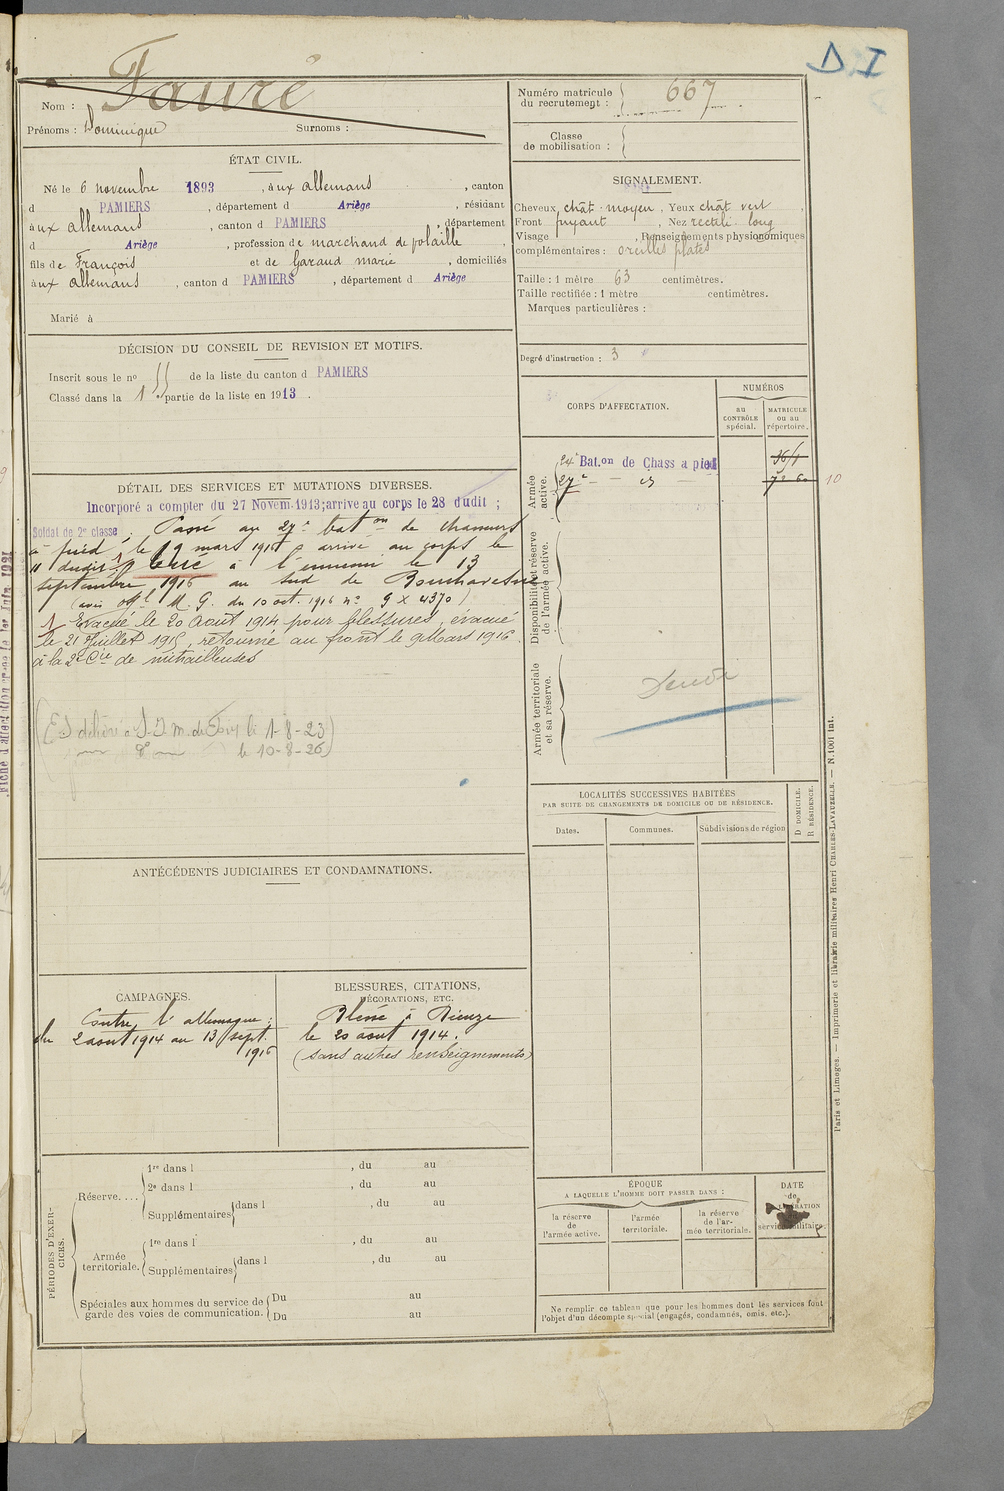 D I
Nom : Fauré
Prénoms : Dominique Surnoms :
Numéro matricule du recrutement : 667
Classe de mobilisation :
ÉTAT CIVIL.
Né le 6 novembre 1893, aux allemans, canton
d PAMIERS, département d Ariège, résidant
aux allemans, canton d PAMIERS, département
d Ariège, profession de marchand de volaille,
fils de François et de Garaud marie, domiciliés
aux allemans, canton d PAMIERS, département d Ariège
Marié à
SIGNALEMENT.
Cheveux chât-moyen, Yeux chât vert
Front fuyant, Nez rectili. long
Visage , Renseignements physionomiques
complémentaires : oreilles plates
Taille : 1 mètre 63 centimètres.
Taille rectifiée : 1 mètre centimètres.
Marques particulières :
Degré d'instruction : 3
DÉCISION DU CONSEIL DE REVISION ET MOTIFS.
Inscrit sous le no 55 de la liste du canton d PAMIERS
Classé dans la 1e partie de la liste en 1913.
CORPS D'AFFECTATION.
NUMÉROS
au CONTRÔLE spécial.
MATRICULE ou au répertoire.
Armée active.
24e Bat.on de Chass a pied
27e - - d°
10
Disponibilité et réserve de l'armée active.
Armée territoriale et sa réserve.
DÉTAIL DES SERVICES ET MUTATIONS DIVERSES.
Incorporé a compter du 27 Novem. 1913; arrive au corps le 28 dudit ;
Soldat de 2e classe ; Passé au 27e baton de chasseurs
à pied, le 9 mars 1916 arrivé au corps le
11 dudit. tué à l'ennemi le 13
septembre 1916 au sud de Bouchavesnes
(avis offel M. G. du 10 oct. 1916 no G X 4370)
1 Evacué le 20 Août 1914 pour blessures, évacué
le 21 Juillet 1915, retourné au front le 9 Mars 1916
à la 2e Cie de mitrailleuses
le 1-8-23)
le 10-8-26)
LOCALITÉS SUCCESSIVES HABITÉES
PAR SUITE DE CHANGEMENTS DE DOMICILE OU DE RÉSIDENCE.
Dates.
Communes.
Subdivisions de région
D DOMICILE.
R RÉSIDENCE.
ANTÉCÉDENTS JUDICIAIRES ET CONDAMNATIONS.
CAMPAGNES.
Contre l'allemagne ;
du 2 aout 1914 au 13 sept.
1916
BLESSURES, CITATIONS,
DÉCORATIONS, ETC.
Blessé à Dieuze
le 20 aout 1914.
(sans autres renseignements)
PÉRIODES D'EXERCICES.
Réserve....
1re dans l , du au
2e dans l , du au
Supplémentaires dans l , du au
Armée territoriale.
1re dans l , du au
Supplémentaires dans l , du au
Spéciales aux hommes du service de garde des voies de communication.
Du au
Du au
ÉPOQUE
A LAQUELLE L'HOMME DOIT PASSER DANS :
la réserve de l'armée active.
l'armée territoriale.
la réserve de l'armée territoriale.
DATE de LIBÉRATION service militaire.
Ne remplir ce tableau que pour les hommes dont les services font
l'objet d'un décompte spécial (engagés, condamnés, omis, etc.).
Paris et Limoges. — Imprimerie et librairie militaires Henri CHARLES-LAVAUZELLE. — N. 1001 Int.